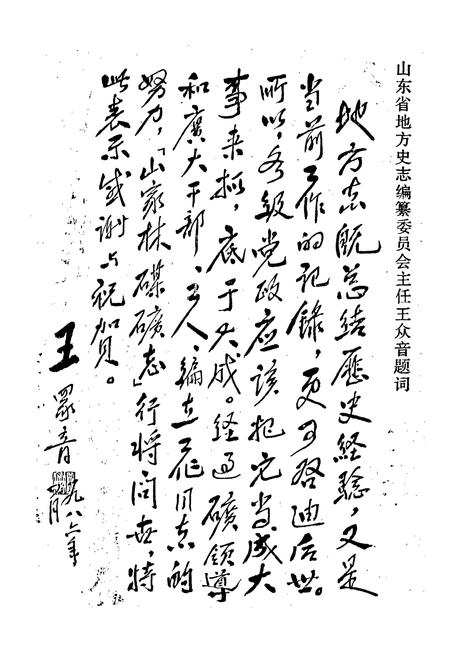 山东省地方史志编纂委员会主任王众音题词
地方志既总结歷史经驗，又是
当前工作的记錄，更可啓迪后世。
所以，各级党政应该把它当成大
事来抓，底于大成。经过礦领導
和廣大干部、工人、编立工作同志的
努力，「山家林煤礦志」行将问世，特
此表示感谢与祝贺。
王眾音
一九八六年
月